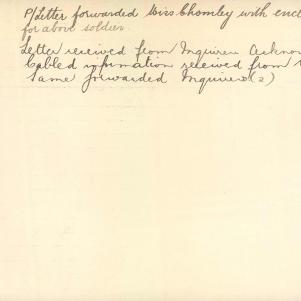 P/Letter forwarded Miss Chomley with encl
for above soldier.
Letter received from Inquirer Acknow
Cabled information received from
Same forwarded Inquirer (2)